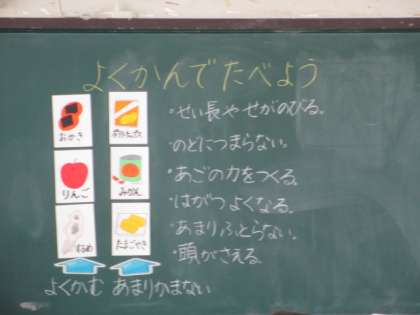 よくかんでたべよう
おかき
りんご
みかん
するめ
たまごやき
・せい長やせがのびる。
・のどにつまらない。
・あごの力をつくる。
・はがつよくなる。
・あまりふとらない。
・頭がさえる。
よくかむ あまりかまない